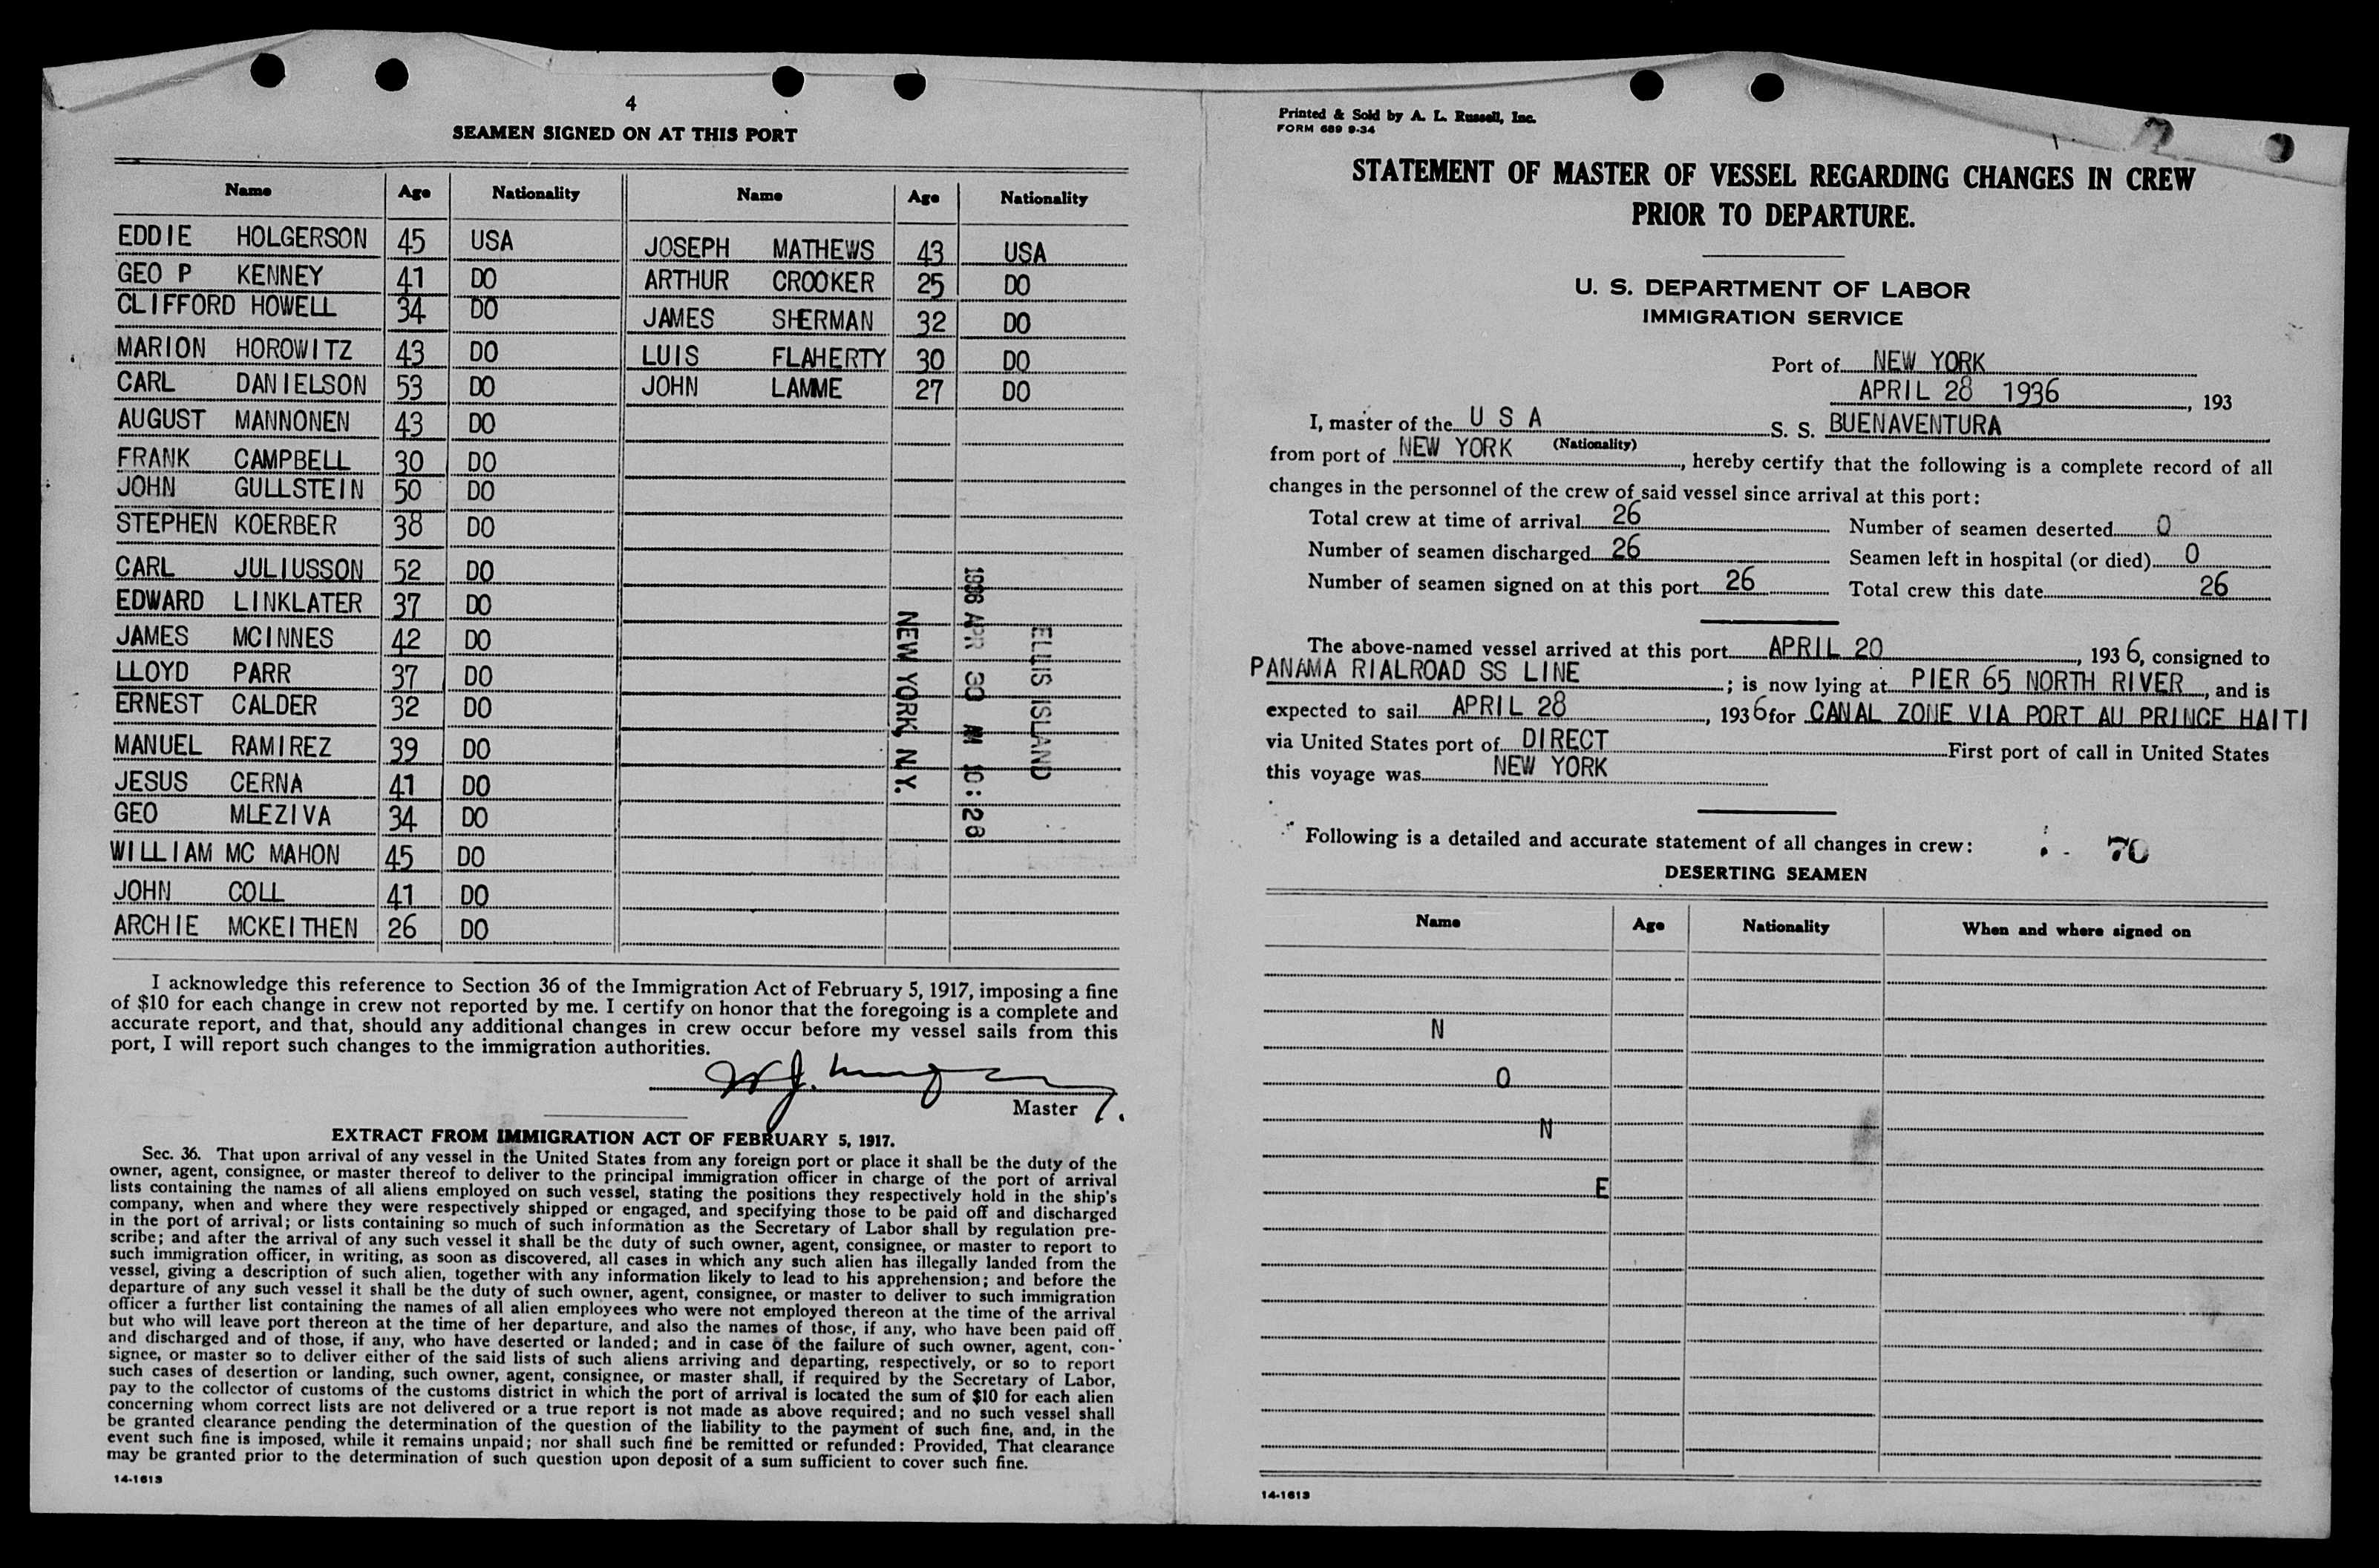 4
SEAMEN SIGNED ON AT THIS PORT
Name Age Nationality Name Age Nationality
EDDIE HOLGERSON 45 USA JOSEPH MATHEWS 43 USA
GEO P KENNEY 41 DO ARTHUR CROOKER 25 DO
CLIFFORD HOWELL 34 DO JAMES SHERMAN 32 DO
MARION HOROWITZ 43 DO LUIS FLAHERTY 30 DO
CARL DANIELSON 53 DO JOHN LAMME 27 DO
AUGUST MANNONEN 43 DO
FRANK CAMPBELL 30 DO
JOHN GULLSTEIN 50 DO
STEPHEN KOERBER 38 DO
CARL JULIUSSON 52 DO
EDWARD LINKLATER 37 DO
JAMES MCINNES 42 DO
LLOYD PARR 37 DO
ERNEST CALDER 32 DO
MANUEL RAMIREZ 39 DO
JESUS CERNA 41 DO
GEO MLEZIVA 34 DO
WILLIAM MC MAHON 45 DO
JOHN COLL 41 DO
ARCHIE MCKEITHEN 26 DO
ELLIS ISLAND
1936 APR 30 AM 10:28
NEW YORK, N.Y.
I acknowledge this reference to Section 36 of the Immigration Act of February 5, 1917, imposing a fine
of $10 for each change in crew not reported by me. I certify on honor that the foregoing is a complete and
accurate report, and that, should any additional changes in crew occur before my vessel sails from this
port, I will report such changes to the immigration authorities.
Master
EXTRACT FROM IMMIGRATION ACT OF FEBRUARY 5, 1917.
Sec. 36. That upon arrival of any vessel in the United States from any foreign port or place it shall be the duty of the
owner, agent, consignee, or master thereof to deliver to the principal immigration officer in charge of the port of arrival
lists containing the names of all aliens employed on such vessel, stating the positions they respectively hold in the ship's
company, when and where they were respectively shipped or engaged, and specifying those to be paid off and discharged
in the port of arrival; or lists containing so much of such information as the Secretary of Labor shall by regulation pre-
scribe; and after the arrival of any such vessel it shall be the duty of such owner, agent, consignee, or master to report to
such immigration officer, in writing, as soon as discovered, all cases in which any such alien has illegally landed from the
vessel, giving a description of such alien, together with any information likely to lead to his apprehension; and before the
departure of any such vessel it shall be the duty of such owner, agent, consignee, or master to deliver to such immigration
officer a further list containing the names of all alien employees who were not employed thereon at the time of the arrival
but who will leave port thereon at the time of her departure, and also the names of those, if any, who have been paid off
and discharged and of those, if any, who have deserted or landed; and in case of the failure of such owner, agent, con-
signee, or master so to deliver either of the said lists of such aliens arriving and departing, respectively, or so to report
such cases of desertion or landing, such owner, agent, consignee, or master shall, if required by the Secretary of Labor,
pay to the collector of customs of the customs district in which the port of arrival is located the sum of $10 for each alien
concerning whom correct lists are not delivered or a true report is not made as above required; and no such vessel shall
be granted clearance pending the determination of the question of the liability to the payment of such fine, and, in the
event such fine is imposed, while it remains unpaid; nor shall such fine be remitted or refunded: Provided, That clearance
may be granted prior to the determination of such question upon deposit of a sum sufficient to cover such fine.
14-1613
Printed & Sold by A. L. Russell, Inc.
FORM 689 9-34
STATEMENT OF MASTER OF VESSEL REGARDING CHANGES IN CREW
PRIOR TO DEPARTURE.
U. S. DEPARTMENT OF LABOR
IMMIGRATION SERVICE
Port of NEW YORK
APRIL 28 1936, 193
I, master of the U S A S. S. BUENAVENTURA
(Nationality)
from port of NEW YORK, hereby certify that the following is a complete record of all
changes in the personnel of the crew of said vessel since arrival at this port:
Total crew at time of arrival 26 Number of seamen deserted 0
Number of seamen discharged 26 Seamen left in hospital (or died) 0
Number of seamen signed on at this port 26 Total crew this date 26
The above-named vessel arrived at this port APRIL 20, 1936, consigned to
PANAMA RIALROAD SS LINE; is now lying at PIER 65 NORTH RIVER, and is
expected to sail APRIL 28, 1936 for CANAL ZONE VIA PORT AU PRINCE HAITI
via United States port of DIRECT First port of call in United States
this voyage was NEW YORK
Following is a detailed and accurate statement of all changes in crew: 70
DESERTING SEAMEN
Name Age Nationality When and where signed on
N
O
N
E
14-1613